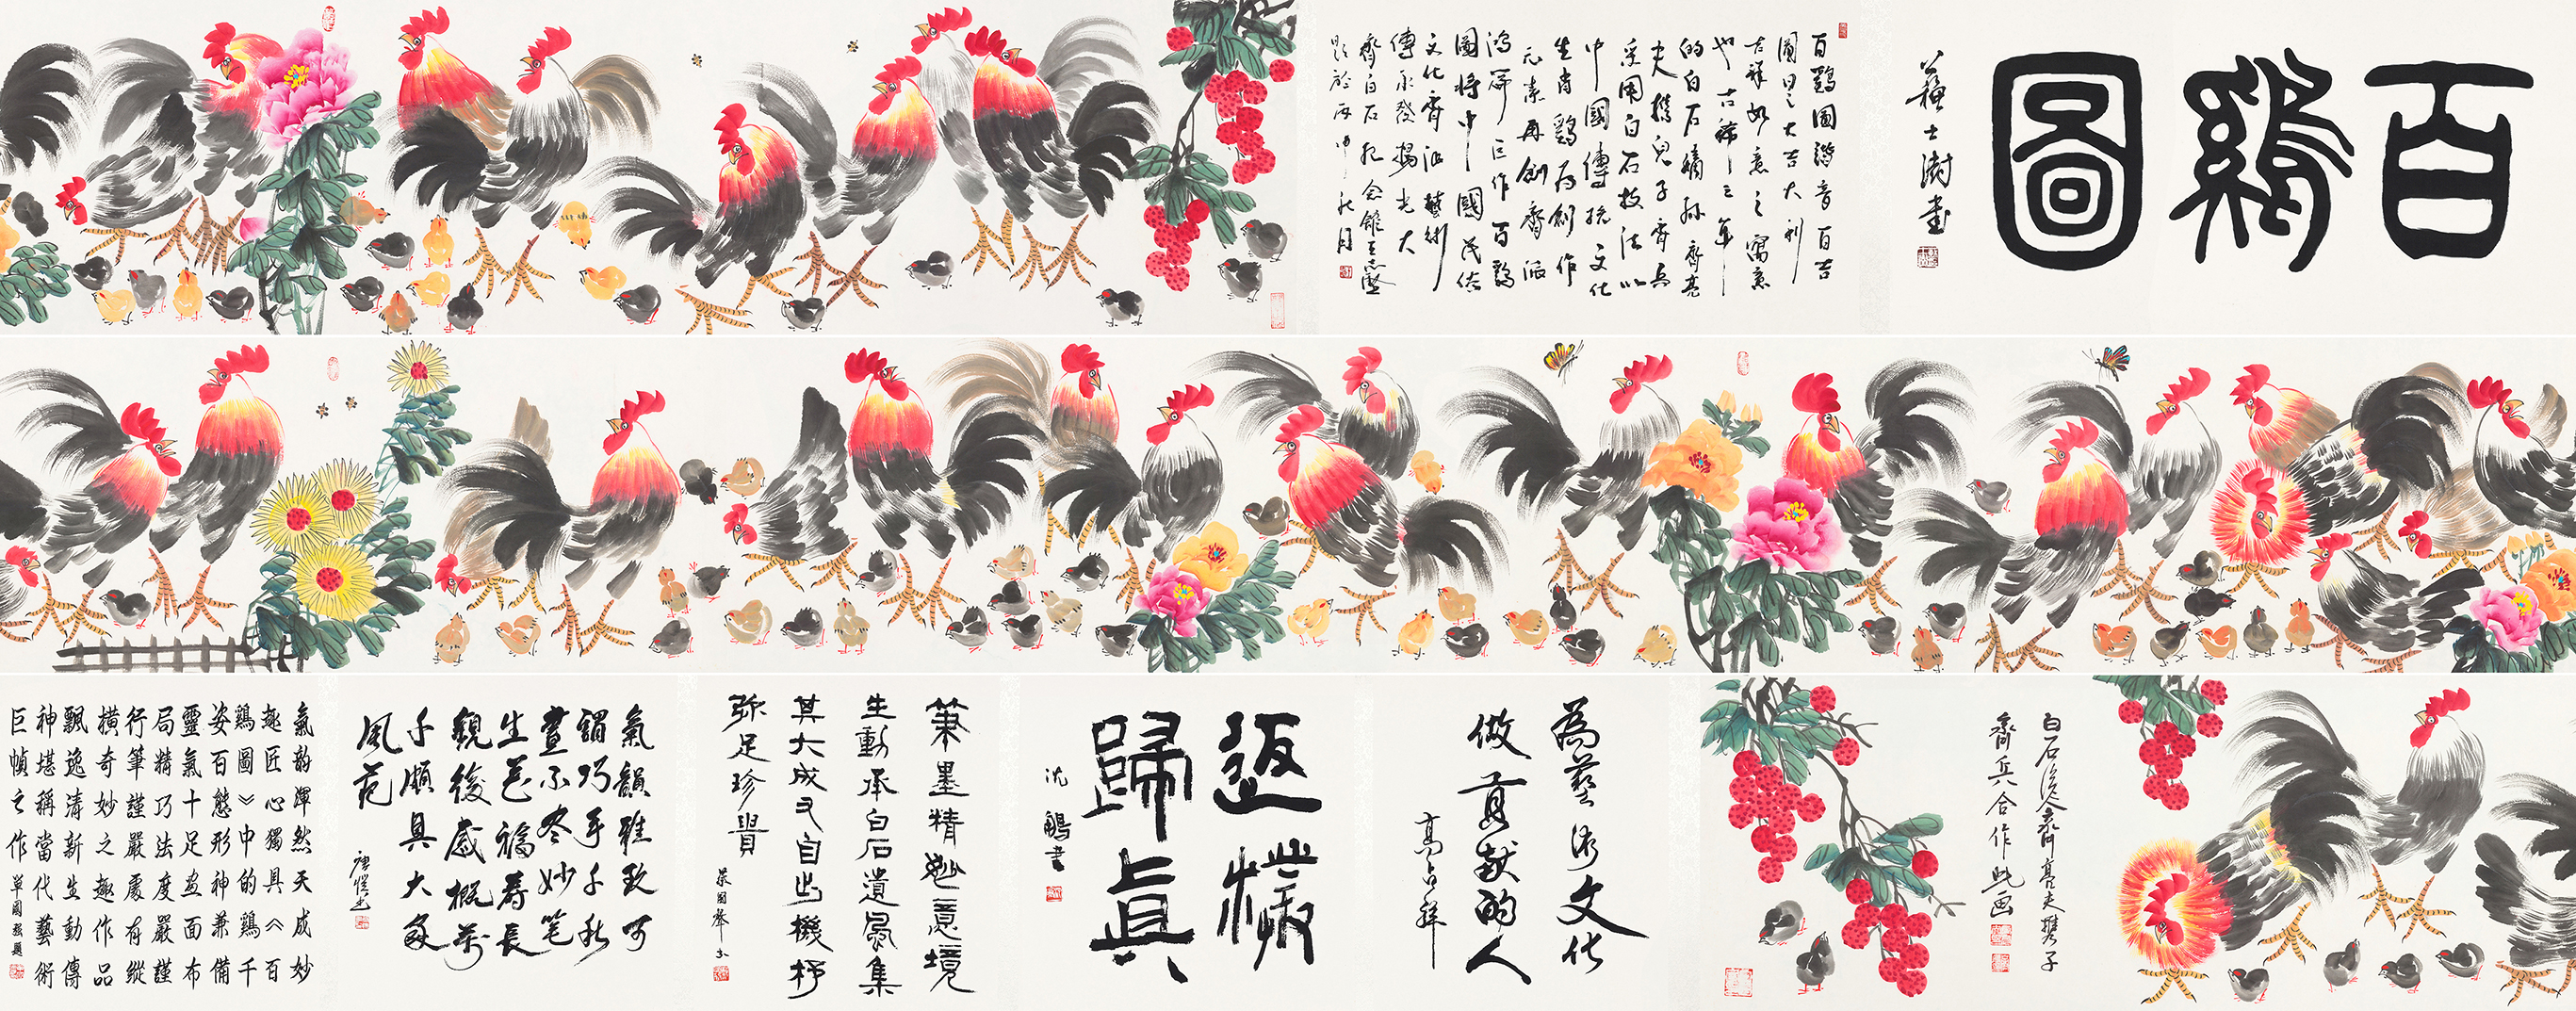 百鷄圖
蘇士澍書
百鷄圖諧音百吉
圖日之大吉大利
吉祥如意之寓意
也古稀之年
的白石嫡孫齊亮
夫携兒子齊兵
采用白石技法以
中國傳統文化
生肖鷄为創作
元素再創齊派
鴻篇巨作百鷄
圖將中國民俗
文化齊派藝術
傳承發揚光大
齊白石紀念館王志堅
題於丙申秋月
白石後人齊亮夫携子
齊兵合作此画
為藝術文化
做貢献的人
高占祥
返樸
歸真
沈鵬書
筆墨精妙意境
生動承白石遺風集
其大成又自出機杼
弥足珍貴
氣韻雅致可
謂巧手千秋
畫不盡妙笔
生花福壽長
觀後感概万
千頗具大家
風范
唐愷書
氣韵渾然天成妙
趣匠心獨具《百
鷄圖》中的鷄千
姿百態形神兼備
靈氣十足画面布
局精巧法度嚴謹
行筆謹嚴處有縱
橫奇妙之趣作品
飄逸清新生動傳
神堪稱當代藝術
巨幀之作
單國強題